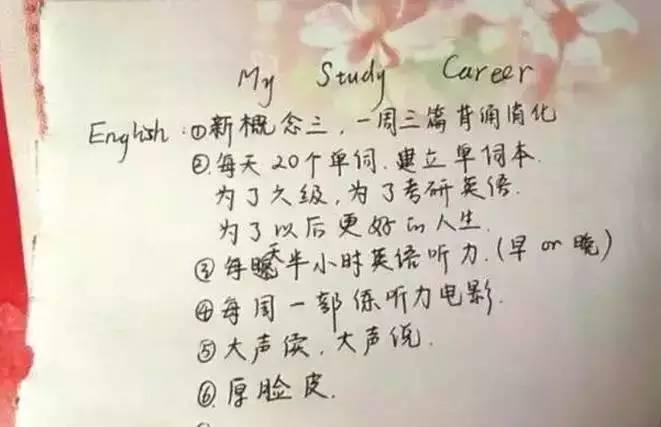 My Study Career
English: ①新概念三，一周三篇背诵消化
②每天20个单词.建立单词本.
为了六级，为了考研英语.
为了以后更好的人生.
③每天半小时英语听力.(早or晚)
④每周一部练听力电影.
⑤大声读，大声说.
⑥厚脸皮.